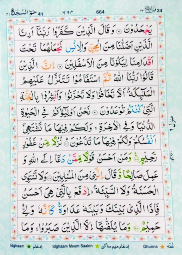 41
664
24
يَجْحَدُوْنَ ۝ وَ قَالَ الَّذِيْنَ كَفَرُوْا رَبَّنَاۤ اَرِنَا
الَّذَيْنِ اَضَلّٰنَا مِنَ الْجِنِّ وَ الْاِنْسِ نَجْعَلْهُمَا تَحْتَ
اَقْدَامِنَا لِيَكُوْنَا مِنَ الْاَسْفَلِيْنَ ۝ اِنَّ الَّذِيْنَ
قَالُوْا رَبُّنَا اللّٰهُ ثُمَّ اسْتَقَامُوْا تَتَنَزَّلُ عَلَيْهِمُ
الْمَلٰٓئِكَةُ اَلَّا تَخَافُوْا وَ لَا تَحْزَنُوْا وَ اَبْشِرُوْا بِالْجَنَّةِ
الَّتِيْ كُنْتُمْ تُوْعَدُوْنَ ۝ نَحْنُ اَوْلِيٰٓؤُكُمْ فِي الْحَيٰوةِ
الدُّنْيَا وَ فِي الْاٰخِرَةِ ۚ وَ لَكُمْ فِيْهَا مَا تَشْتَهِيْۤ
اَنْفُسُكُمْ وَ لَكُمْ فِيْهَا مَا تَدَّعُوْنَ ۝ نُزُلًا مِّنْ غَفُوْرٍ
رَّحِيْمٍ ۝ وَ مَنْ اَحْسَنُ قَوْلًا مِّمَّنْ دَعَاۤ اِلَى اللّٰهِ وَ
عَمِلَ صَالِحًا وَّ قَالَ اِنَّنِيْ مِنَ الْمُسْلِمِيْنَ ۝ وَ لَا تَسْتَوِي
الْحَسَنَةُ وَ لَا السَّيِّئَةُ ؕ اِدْفَعْ بِالَّتِيْ هِيَ اَحْسَنُ
فَاِذَا الَّذِيْ بَيْنَكَ وَ بَيْنَهٗ عَدَاوَةٌ كَاَنَّهٗ وَلِيٌّ
حَمِيْمٌ ۝ وَ مَا يُلَقّٰىهَاۤ اِلَّا الَّذِيْنَ صَبَرُوْا ۚ وَ مَا